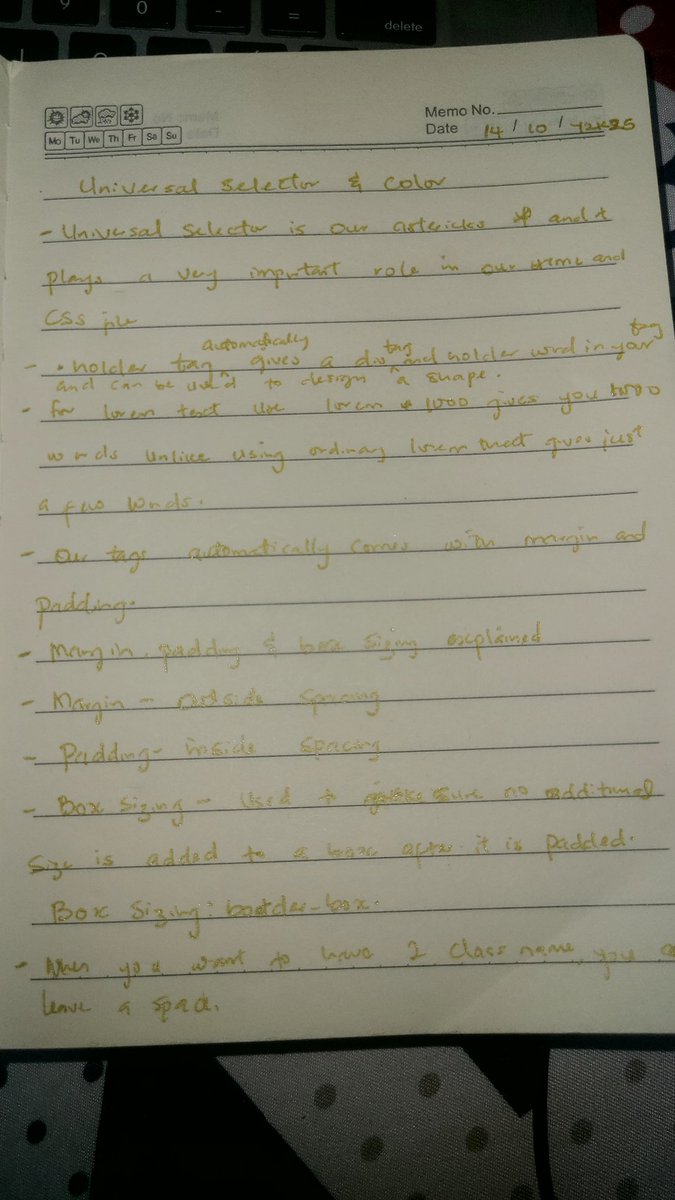 9 0 - = delete
Memo No.
Mo Tu We Th Fr Sa Su
Date 14 / 10 /
Universal Selector & Color
- Universal Selector is our astericks and it
plays a very important role in our and
CSS file
automatically tag tag
- . holder tag gives a div and holder word in your
and can be use'd to design a shape.
- for lorem text use lorem * 1000 gives you 1000
words unlike using ordinary lorem that gives just
a few words.
- Our tags automatically comes with margin and
padding.
- Margin, padding & box sizing explained
- Margin - outside spacing
- Padding - inside spacing
- Box sizing - used to sure no additional
size is added to a box after it is padded.
Box Sizing: border-box.
- When you want to have 2 class name, you
leave a space.